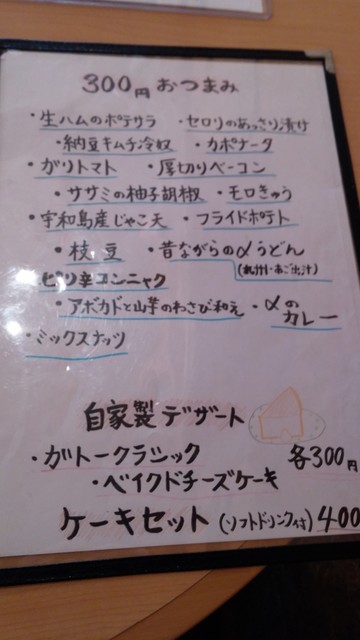 300円 おつまみ
・生ハムのポテサラ ・セロリのあっさり漬け
・納豆キムチ冷奴 ・カポナータ
・ガリトマト ・厚切りベーコン
・ササミの柚子胡椒 ・モロきゅう
・宇和島産じゃこ天 ・フライドポテト
・枝豆 ・昔ながらのαうどん
(九州・あご出汁)
ピリ辛コンニャク
・アボカドと山芋のわさび和え ・αの
カレー
・ミックスナッツ
自家製デザート
・ガトークラシック 各300円
・ベイクドチーズケーキ
ケーキセット (ソフトドリンク付) 400